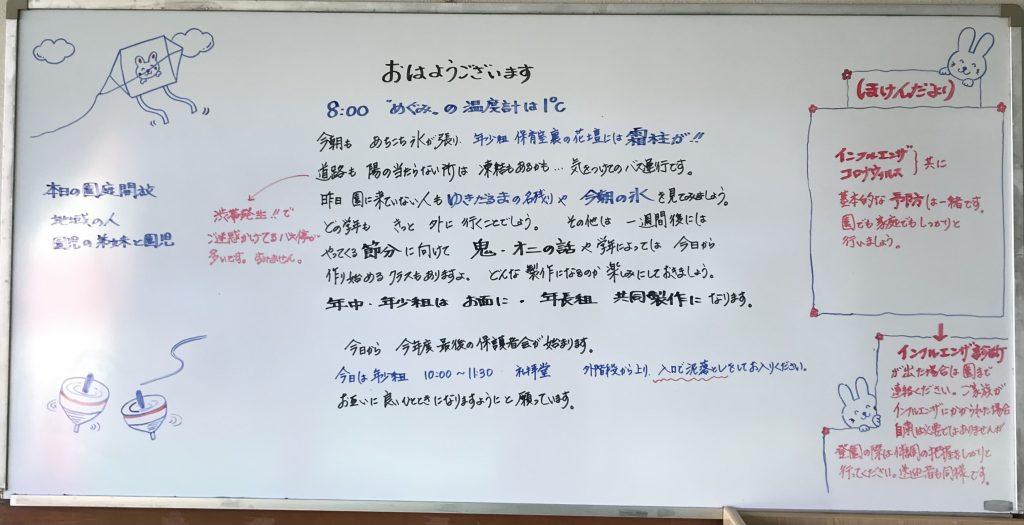 おはようございます
8:00 "めぐみ"の温度計は1℃
今朝も あちこち氷が張り、年少組保育室裏の花壇には霜柱が!!
道路も 陽の当たらない所は 凍結もあるかも… 気をつけてのバス運行です。
昨日 園に来ていない人も ゆきだるまの名残りや 今朝の氷を見てみましょう。
どの学年も きっと 外に行くことでしょう。 その他は 一週間後には
やってくる節分に向けて 鬼・オニの話や学年によっては 今日から
作り始めるクラスもありますよ。 どんな製作になるのか楽しみにしておきましょう。
年中・年少組は お面に・年長組 共同製作になります。
今日から 今年度最後の保護者会が始まります。
今日は年少組 10:00〜11:30 礼拝堂 外階段から上り、入口で泥落としをしてお入りください。
お互いに良いひとときになりますようにと願っています。
本日の園庭開放
地域の人
園児の弟妹と園児
渋滞発生!!で
ご迷惑かけてるバス停が
多いです。すみません。
(ほけんだより)
インフルエンザ
コロナウィルス } 共に
基本的な予防は一緒です。
園でも家庭でもしっかりと
行いましょう。
インフルエンザ診断
が出た場合は園まで
連絡ください。ご家族が
インフルエンザにかかられた場合
自粛は必要ではありませんが
登園の際は体調の把握をしっかりと
行ってください。送迎者も同様です。